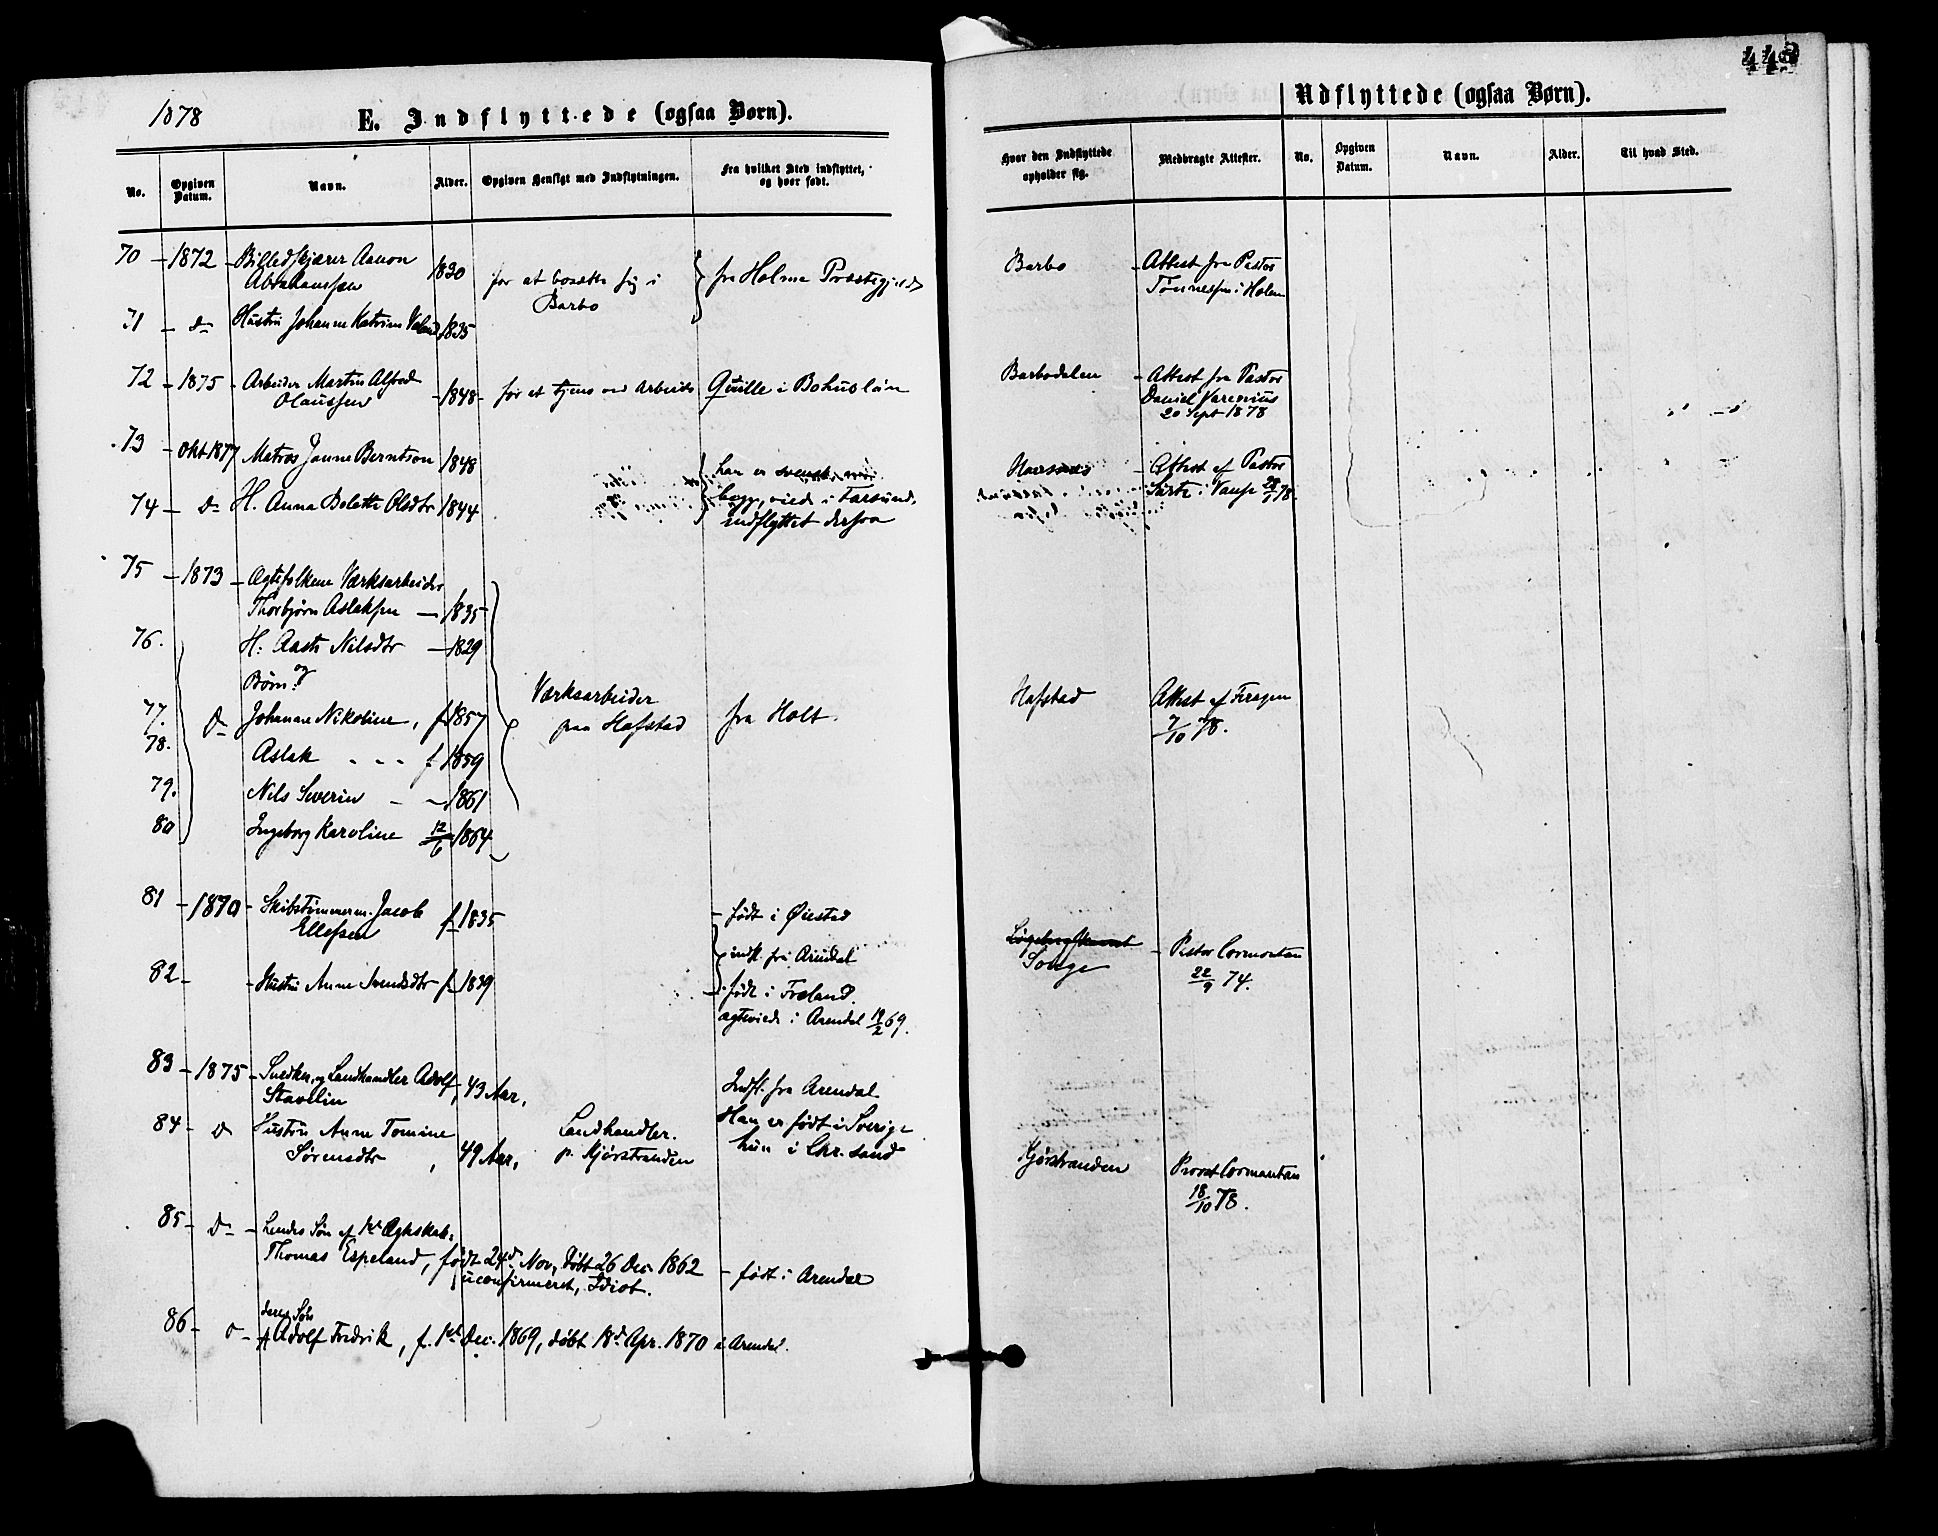 1878
E. Indflyttede (ogsaa Børn).
No. Opgiven Datum. Navn. Alder. Opgiven Hensigt med Indflytningen. Fra hvilket Sted indflyttet, og hvor født.
70 - 1872 - Billedskjærer Aanon
Abrahamsen 1830 for at bosætte sig i
Barbo
fra Holme Præstegjeld
71 - do Hustru Johanne Katrine 1835
72 - 1875 - Arbeider Martin Alfred
Olaussen - 1848 - for at tjene ved Arbeide Quille i Bohuslän
73 - Okt 1877 Matros Janne Berntson 1848
74 - do H. Anna Bolette Olsdtr 1844
han er svensk,
begge, viede i Farsund,
indflyttet derfra
75 - 1873 - Ægtefolkene Værksarbeider
Thorbjørn Aslaksen - 1835
76. H. Aaste Nilsdtr - 1829
og
Børn:
77. do Johanne Nikoline, f. 1857
78. Aslak - - - f 1859
79. Nils Severin - - 1861
80 Ingeborg Karoline 12/6 1864
Værksarbeider
paa Hafstad
fra Holt.
81 - 1870 - Skibstømmerm. Jacob
Ellefsen f. 1835
- født i Øiestad
indfl. fra Arendal
82 - - Hustru Anne Svendsdtr f. 1839
- født i Froland.
ægteviede i Arendal 19/2 69.
83 - 1875 - Snedker og Landhandler Adolf
Stavelin, 43 Aar,
84 - do Hustru Anne Tomine
Sørensdtr, 49 Aar,
Landhandler.
p. Kjørstranden
Indfl. fra Arendal
Han er født i Sverige
hun i Chr.sand
85 - do - hendes Søn af 1ste Ægteskab:
Thomas Espeland, født 24de Nov, døbt 26 Dec 1862
uconfirmeret, Idiot.
- født i Arendal
86 - do - deres Søn
Adolf Fredrik, f. 1ste Dec. 1869, døbt 18de Apr. 1870 i Arendal.
Udflyttede (ogsaa Børn).
Hvor den Indflyttede opholder sig. Medbragte Attester. No. Opgiven Datum. Navn. Alder. Til hvad Sted.
Barbo - Attest fra Pastor
Tønnessen i Holme
Barbodalen - Attest fra Pastor
Daniel Varenius
20 Sept 1878
- Attest af Pastor
i Vanse 28/9 78.
Hafstad Attest af Feragen
7/10 78.
Songe - Pastor Cormontan
22/9 74.
Kjørstranden Provst Cormontan
18/10 78.